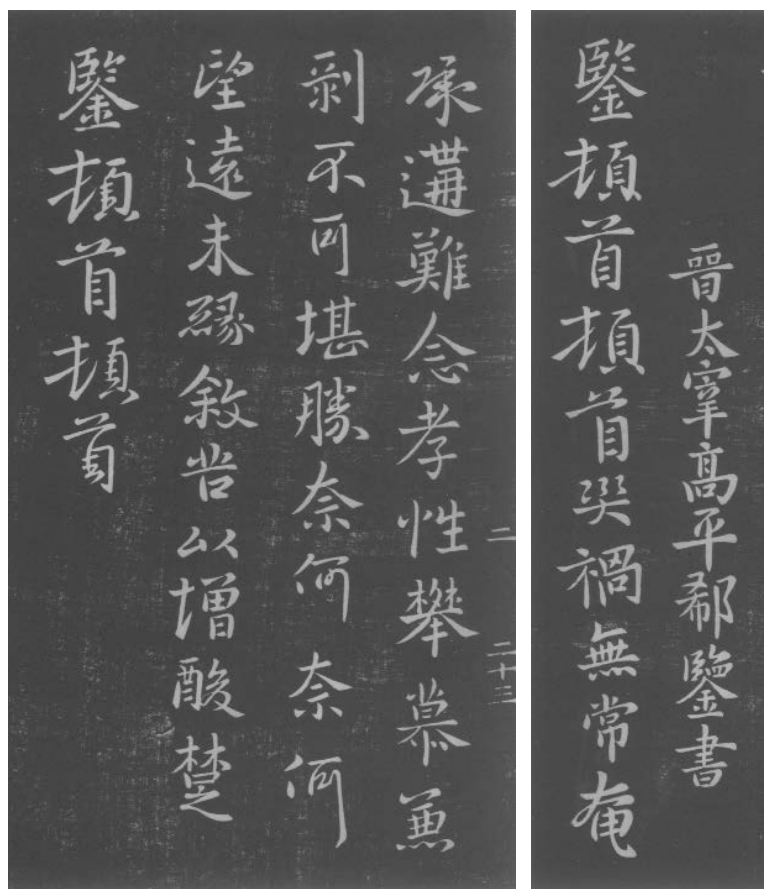 晉太宰高平郗鑒書
鑒頓首頓首災禍無常奄
二 二十三
承遘難念孝性攀慕兼
剝不可堪勝奈何奈何
望遠未緣敘苦以增酸楚
鑒頓首頓首